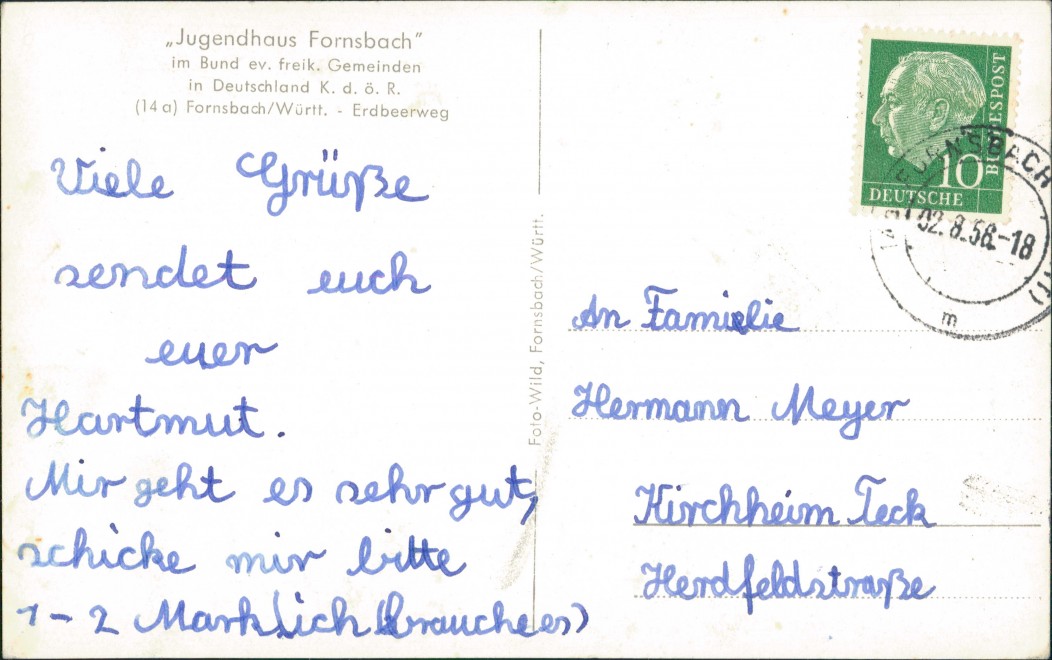 „Jugendhaus Fornsbach”
im Bund ev. freik. Gemeinden
in Deutschland K. d. ö. R.
(14 a) Fornsbach/Württ. - Erdbeerweg
Viele Grüße
sendet euch
euer
Hartmut.
Mir geht es sehr gut,
schicke mir bitte
1-2 Mark (ich brauche es)
Foto-Wild, Fornsbach/Württ.
10
DEUTSCHE
BUNDESPOST
FORNSBACH
02.8.58.-18
m
An Familie
Hermann Meyer
Kirchheim Teck
Herdfeldstraße